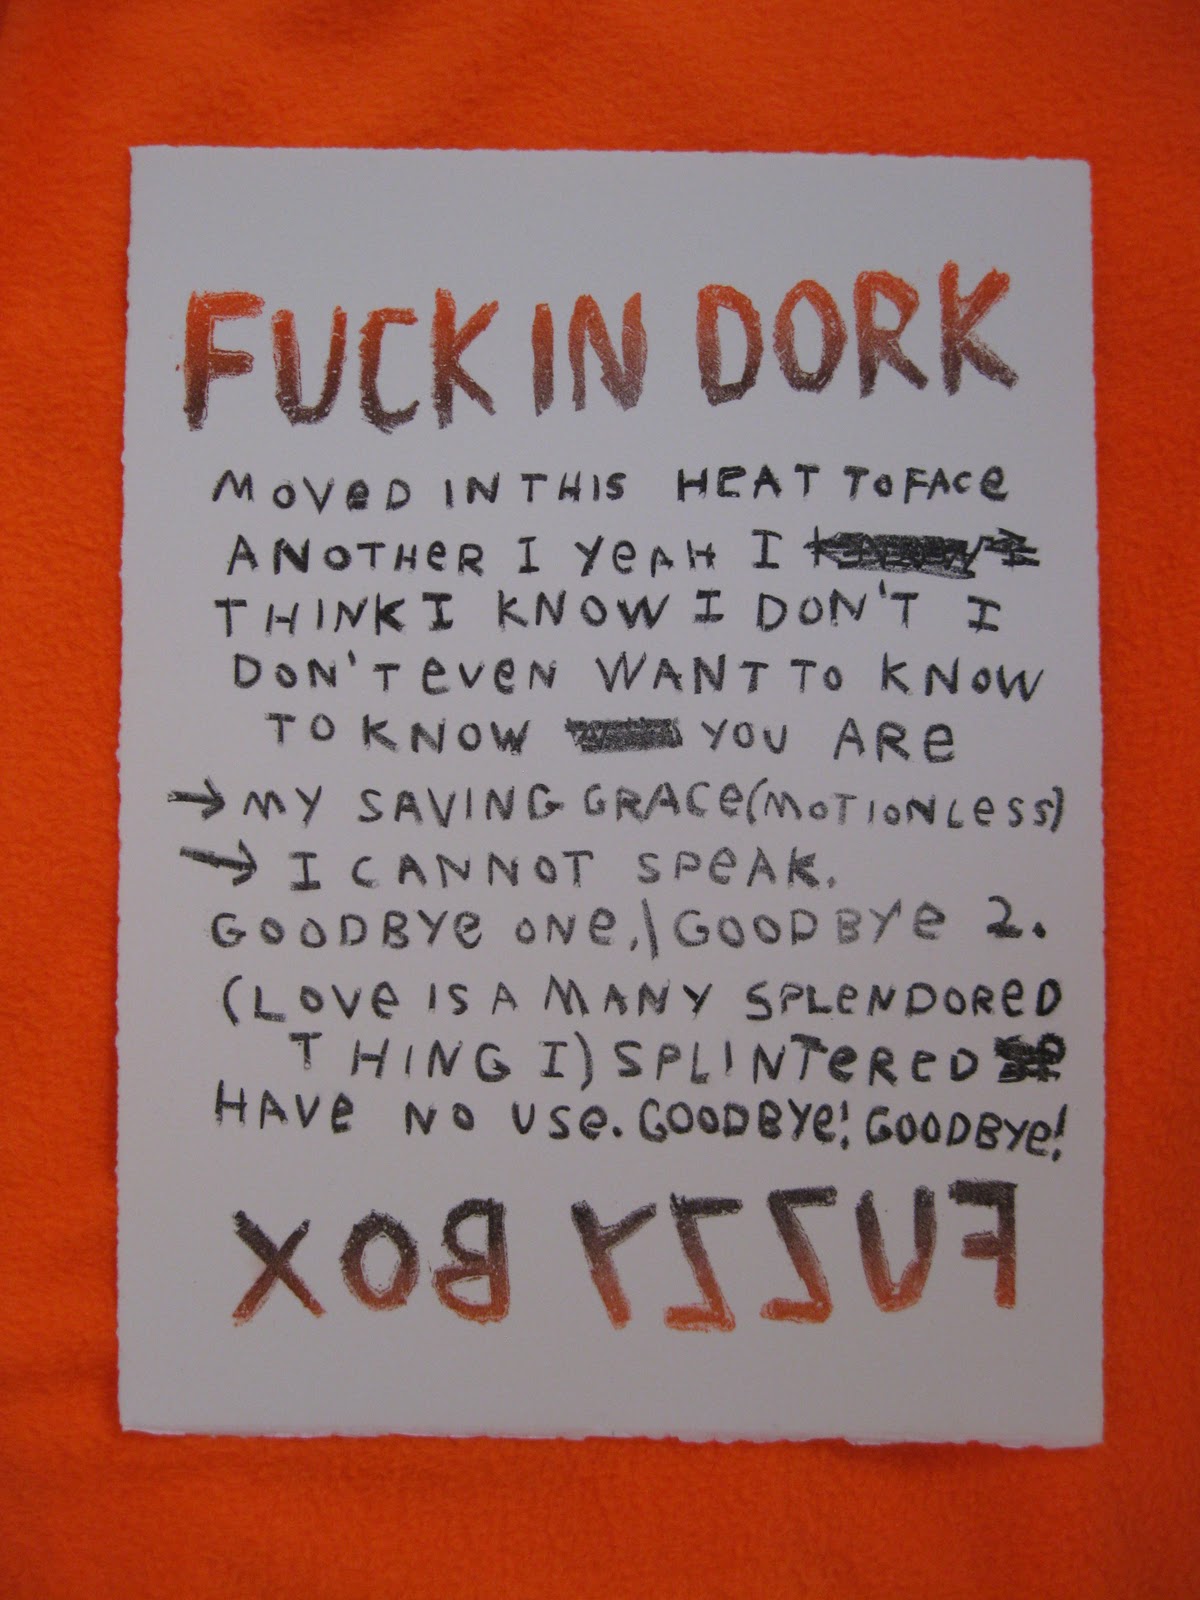 FUCK IN DORK
MOVeD IN THIS HEAT TO FACe
ANOTHeR I YeAH I
THINK I KNOW I DON'T I
DON'T eVeN WANT TO KNOW
TO KNOW YOU ARe
→ MY SAVING GRACe (MOTIONLeSS)
→ I CANNOT SPeAK.
GOODBYe ONe,\ GOODBYe 2.
(LOVe IS A MANY SPLeNDOReD
THING I) SPLINTeReD
HAVe NO USe. GOODBYe! GOODBYe!
FUZZY BOX